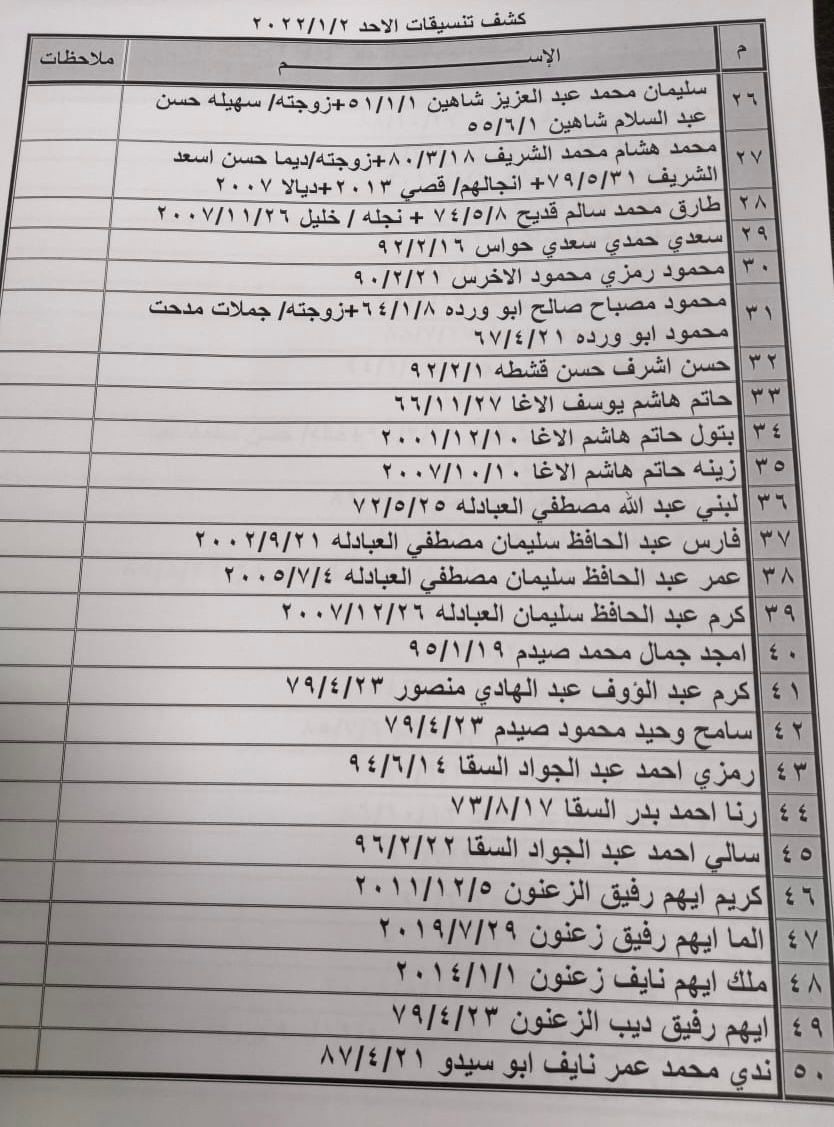 كشف تنسيقات الاحد ٢٠٢٢/١/٢
م الإســـــــــم ملاحظات
٢٦ سليمان محمد عبد العزيز شاهين ٥١/١/١+زوجته/ سهيله حسن
عبد السلام شاهين ٥٥/٦/١
٢٧ محمد هشام محمد الشريف ٨٠/٣/١٨+زوجته/ديما حسن اسعد
الشريف ٧٩/٥/٣١+ انجالهم/ قصي ٢٠١٣+ديالا ٢٠٠٧
٢٨ طارق محمد سالم قديح ٧٤/٥/٨ + نجله / خليل ٢٠٠٧/١١/٢٦
٢٩ سعدي حمدي سعدي حواس ٩٢/٢/١٦
٣٠ محمود رمزي محمود الاخرس ٩٠/٢/٢١
٣١ محمود مصباح صالح ابو ورده ٦٤/١/٨+زوجته/ جملات مدحت
محمود ابو ورده ٦٧/٤/٢١
٣٢ حسن اشرف حسن قشطه ٩٢/٢/١
٣٣ حاتم هاشم يوسف الاغا ٦٦/١١/٢٧
٣٤ بتول حاتم هاشم الاغا ٢٠٠١/١٢/١٠
٣٥ زينه حاتم هاشم الاغا ٢٠٠٧/١٠/١٠
٣٦ لبني عبد الله مصطفي العبادله ٧٢/٥/٢٥
٣٧ فارس عبد الحافظ سليمان مصطفي العبادله ٢٠٠٢/٩/٢١
٣٨ عمر عبد الحافظ سليمان مصطفي العبادله ٢٠٠٥/٧/٤
٣٩ كرم عبد الحافظ سليمان العبادله ٢٠٠٧/١٢/٢٦
٤٠ امجد جمال محمد صيدم ٩٥/١/١٩
٤١ كرم عبد الرؤوف عبد الهادي منصور ٧٩/٤/٢٣
٤٢ سامح وحيد محمود صيدم ٧٩/٤/٢٣
٤٣ رمزي احمد عبد الجواد السقا ٩٤/٦/١٤
٤٤ رنا احمد بدر السقا ٧٣/٨/١٧
٤٥ سالي احمد عبد الجواد السقا ٩٦/٢/٢٢
٤٦ كريم ايهم رفيق الزعنون ٢٠١١/١٢/٥
٤٧ الما ايهم رفيق زعنون ٢٠١٩/٧/٢٩
٤٨ ملك ايهم نايف زعنون ٢٠١٤/١/١
٤٩ ايهم رفيق ديب الزعنون ٧٩/٤/٢٣
٥٠ ندي محمد عمر نايف ابو سيدو ٨٧/٤/٢١